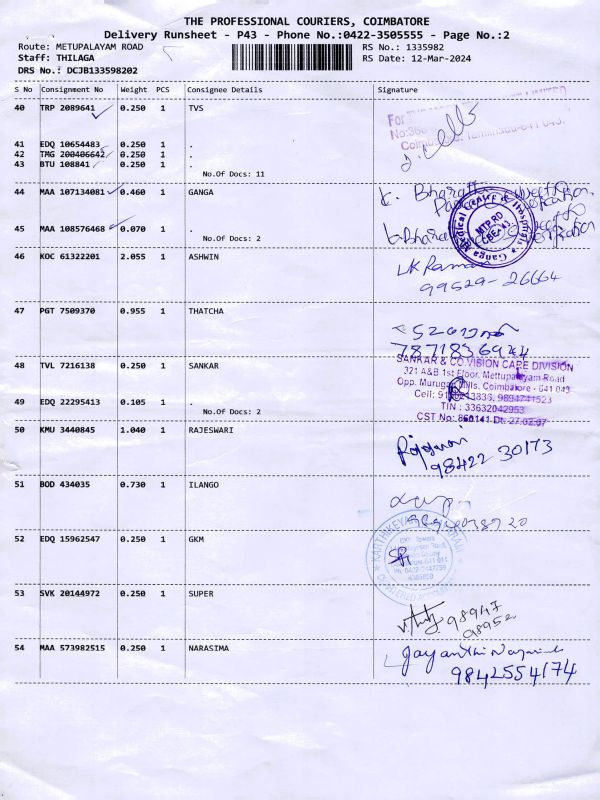 THE PROFESSIONAL COURIERS, COIMBATORE
Delivery Runsheet - P43 - Phone No.:0422-3505555 - Page No.:2
Route: METUPALAYAM ROAD
RS No.: 1335982
Staff: THILAGA
RS Date: 12-Mar-2024
DRS No.: DCJB133598202
S No Consignment No Weight PCS Consignee Details Signature
40 TRP 2089641 0.250 1 TVS
41 EDQ 10654483 0.250 1 .
42 TMG 200406642 0.250 1 .
43 BTU 108841 0.250 1 .
No.Of Docs: 11
44 MAA 107134081 0.460 1 GANGA
45 MAA 108576468 0.070 1 .
No.Of Docs: 2
Ganga Medical Centre & Hospitals
MTP.RD
CBE-43
46 KOC 61322201 2.055 1 ASHWIN
99529-26664
47 PGT 7509370 0.955 1 THATCHA
48 TVL 7216138 0.250 1 SANKAR
SANKAR & CO.VISION CARE DIVISION
321 A&B 1st Floor, Mettupalayam Road
Opp. Murugan Mills, Coimbatore - 641 043
TIN : 33632042953
CST No: 860141 Dt. 27.02.07
49 EDQ 22295413 0.105 1 .
No.Of Docs: 2
50 KMU 3440845 1.040 1 RAJESWARI
98422 30173
51 BOD 434035 0.730 1 ILANGO
52 EDQ 15962547 0.250 1 GKM
53 SVK 20144972 0.250 1 SUPER
98947
98952
54 MAA 573982515 0.250 1 NARASIMA
Jayanthi
9842554174